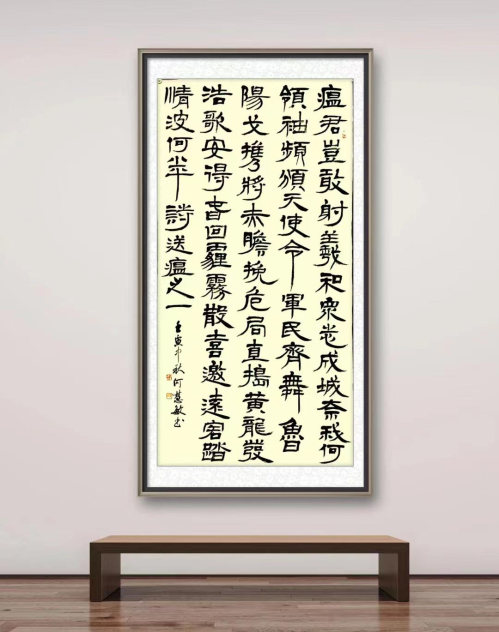 瘟君豈敢射羲和眾志成城奈我何
領袖頻頒天使令軍民齊舞魯
陽戈攜將赤膽挽危局直搗黃龍發
浩歌安得春回霾霧散喜邀遠客踏
情波何詩送瘟之一
壬寅中秋何慧敏书